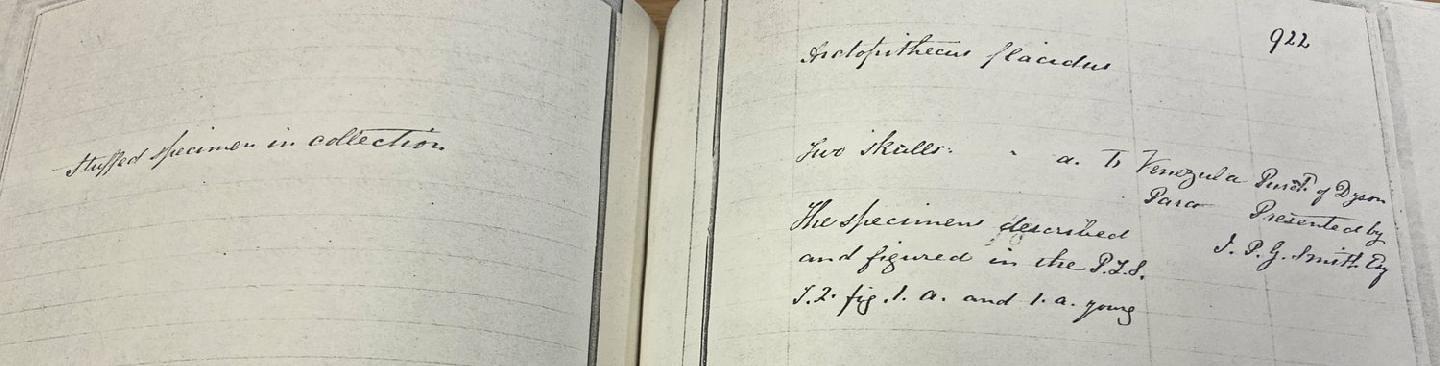 Stuffed specimen in collection
922
Arctopithecus flacidus
Two skulls. a. Ts Venezula Purchd. of Dyson
Para Presented by
J. P. G. Smith Esq
The specimens described
and figured in the P.Z.S.
T.2. fig. 1. a. and 1. a. young